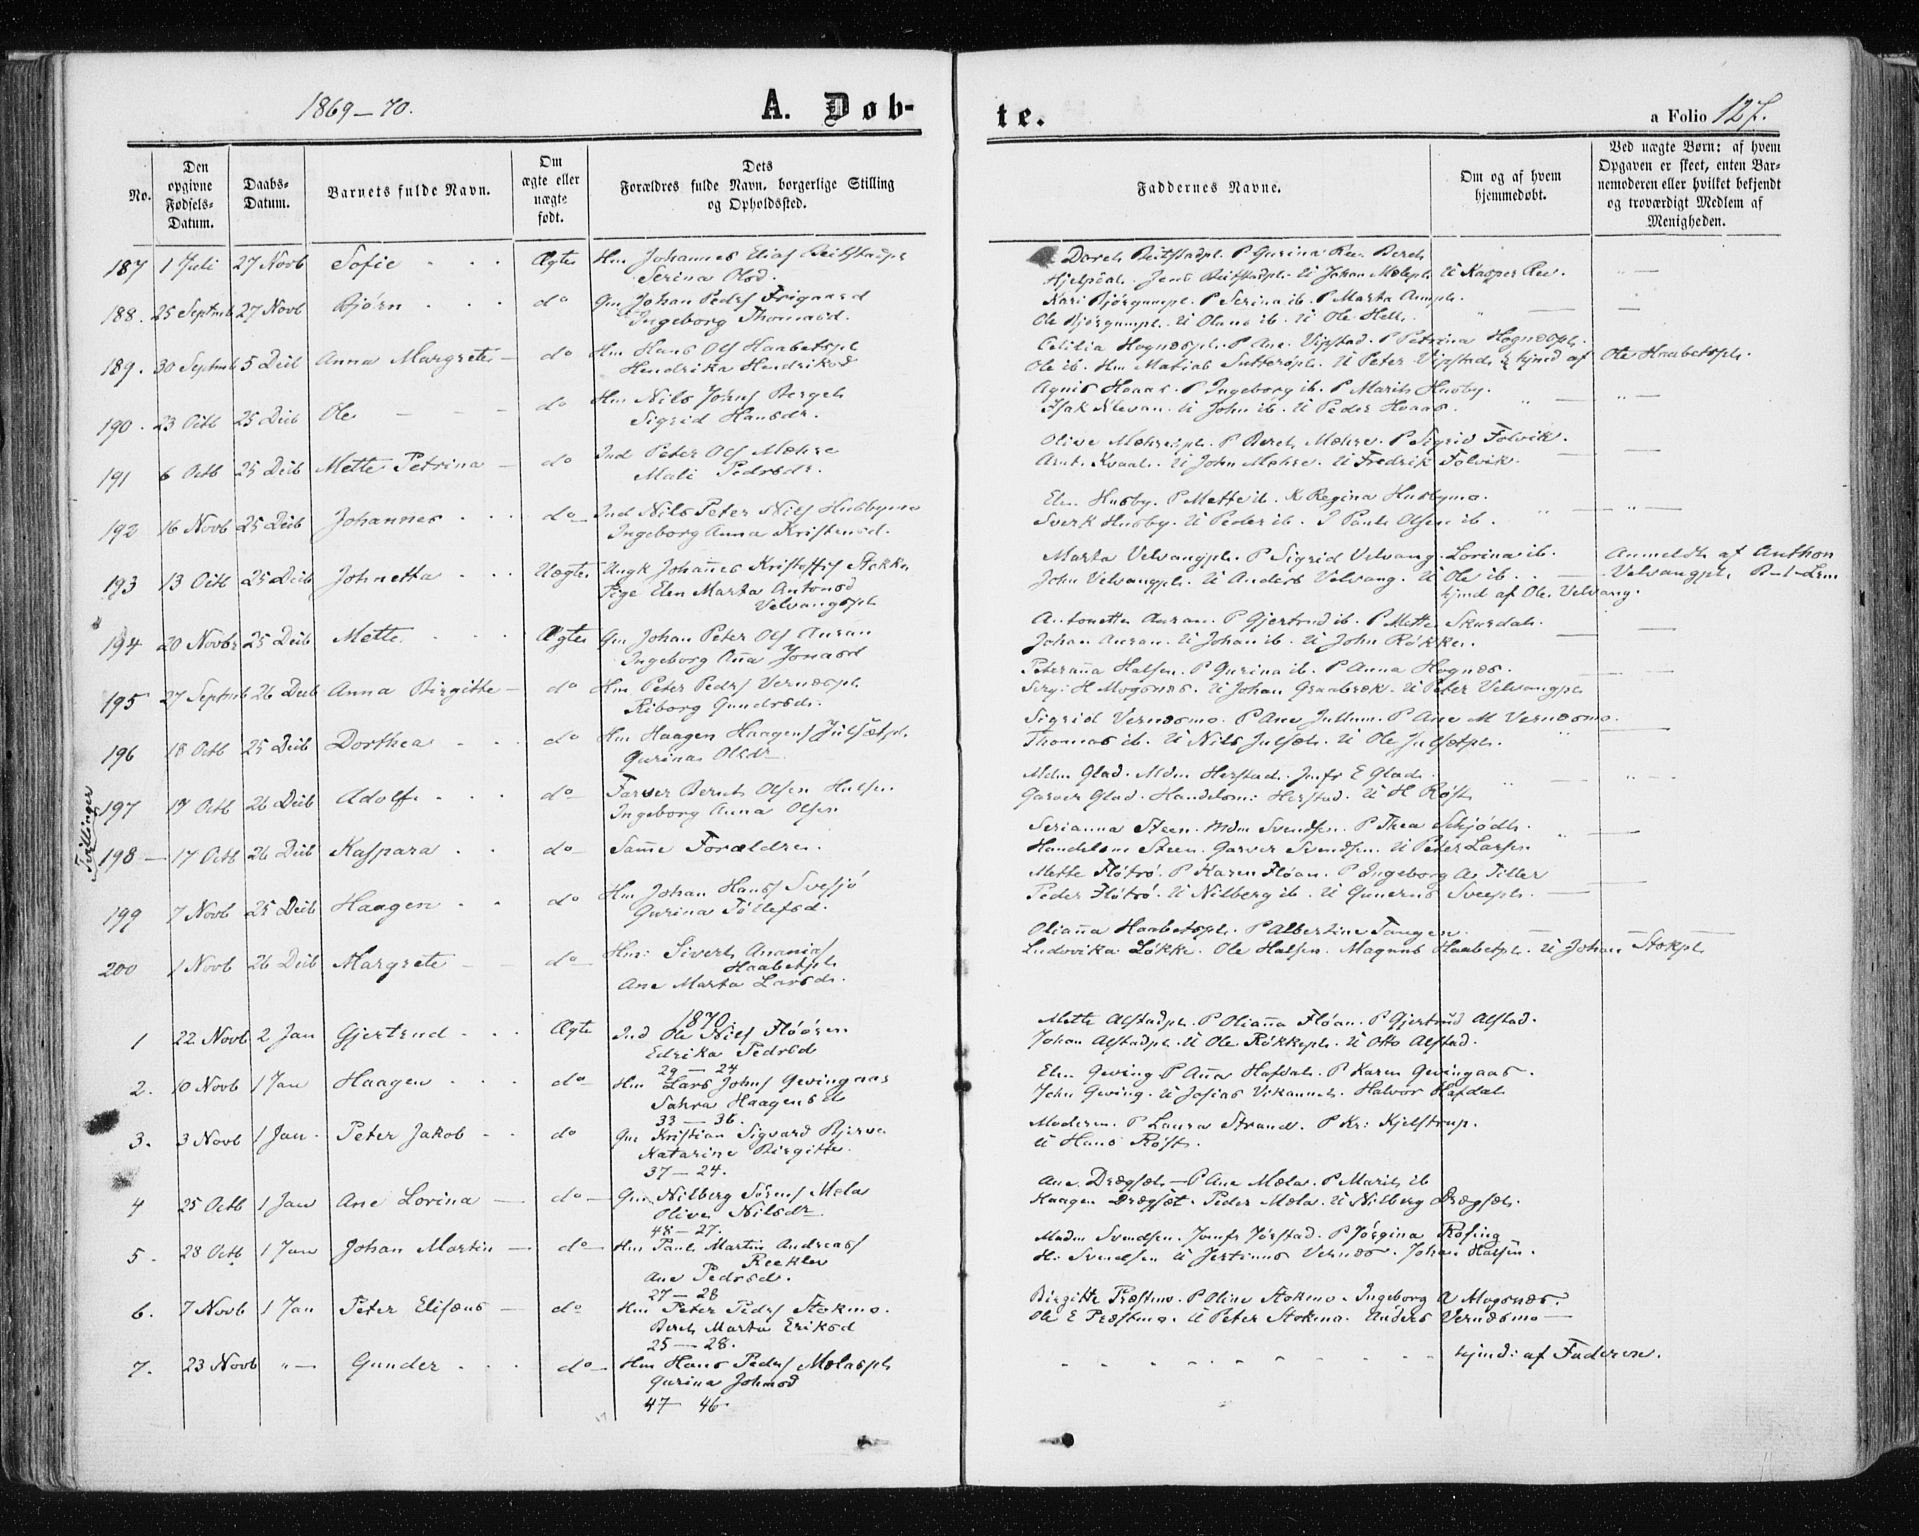 1869-70.
A. Døb-
te.
a Folio 127.
No.
Den opgivne Fødsels-Datum.
Daabs-Datum.
Barnets fulde Navn.
Om ægte eller uægte født.
Dets Forældres fulde Navn, borgerlige Stilling og Opholdssted.
Faddernes Navne.
Om og af hvem hjemmedøbt.
Ved uægte Børn: af hvem Opgaven er skeet, enten Barnemoderen eller hvilket bekjendt og troværdigt Medlem af Menigheden.
187 1 Juli 27 Novb Sofie Ægte Hm Johannes Elias Beitstadpl
Serina Olsd.
188. 25 Septmb 27 Novb Bjørn do Gm Johan Peders Frigaard
Ingeborg Thomasd.
Ole Bjørgumpl. U Olaus ib. U Ole Hell.
189. 30 Septmb 5 Decb Anna Margrete do Hm Hans Ols Haabetspl
Hendrika Henriksd
Ole Haabetspl.
190. 23 Octb 25 Decb Ole do Hm Nils Johns Berget
Sigrid Hansdr.
P Ingeborg ib. P Marit Husby.
U John ib. U Peder Hvaas.
191 6 Octb 25 Decb Mette Petrina do Ind Peter Ols Mæhre
Mali Pedersdr.
Olive Mæhrespl. P Beret Mæhre. P Sigrid Folvik.
Arnt Kvaal. U John Mæhre. U Fredrik Folvik.
192 16 Novb 25 Decb Johannes do Ind Nils Peter Niels Husbymo
Ingeborg Anna Kristensd.
Elen Husby. P Mette ib. K Regina Husbymo.
Sverk Husby. U Peder ib. I Paul Olsen ib.
193 13 Octb 25 Decb Johnetta Uægte Ungk Johannes Kristoffs Stokke
Pige Elen Marta Antonsd
Velvangspl
Marta Velvangpl. P Sigrid Velvang. Lorina ib. Anmeldt af Anthon
John Velvangpl. U Anders Velvang. U Ole ib. Velvangpl.
hjmd af Ole Velvang.
194 20 Novbr 25 Decb Mette Ægte Gm Johan Peter Ols Auran
Ingeborg Anna Jonasd
Antonette Auran. P Gjertrud ib. P Mette Skurdal.
Johan Auran. U Johan ib. U John Røkke.
195 27 Septmb 26 Decb Anna Birgitte do Hm Peter Peders Vernespl
Riborg Gundersdr.
Peteranna Halsen. P Gurina ib. P Anna Hognes.
U Johan Graabræk. U Peter Velvangpl
196 18 Octb 25 Decb Dorthea do Hm Haagen Haagens Julsætpl.
Gurina Olsdr
Sigrid Vernesmo. P Ane Jullum. P Ane M Vernesmo.
Thomas ib. U Nils Julset. U Ole Julsetpl.
Tvillinger
197 17 Octb 26 Decb Adolf do Farver Bernt Olsen Halsen
Ingeborg Anna Olsen
Mdm Glad. Mdm Herstad. Jmfr E Glad.
Garver Glad. Handelsm: Herstad. U H Røst
198 17 Octb 26 Decb Kaspara do Samme Forældre.
Serianna Steen. Mdm Svendsen. P Thea Schjødt.
Handelsm Steen. Garver Svendsen. U Peter Larsen
199 7 Novb 25 Decb Haagen do Hm Johan Hans Svesjø
Gurina Tollefsd.
Mette Fløtrø. P Karen Fløan. P Ingeborg A. Tiller
Peder Fløtrø. U Nilberg ib. U Gunerus Sveepl.
200 1 Novb 26 Decb Margrete do Hm: Sivert Ananias
Haabetspl
Ane Marta Larsdr.
Olianna Haabetspl. P Albertine Tangen.
Ludovika Løkke. Ole Halsen. Magnus Haabetpl. U Johan Stokpl
1870
1 22 Novb 2 Jan Gjertrud Ægte Ind Ole Niels Fløören
Edrika Pedersd
29-24
Mette Alstadpl. P Olianna Fløan. P Gjertrud Alstad.
Johan Alstadpl. U Ole Røkkepl. U Otto Alstad.
2. 10 Novb 1 Jan Haagen do Hm Lars Johns Gevingaas
Sahra Haagensd
33-36.
Elen Geving P Anna Hafdal. P Karen Gevingaas.
John Geving. U Josias Vikannet. Halvor Hafdal
3. 3 Novb 1 Jan. Peter Jakob do Gm Kristian Sigvard Bjerve
Katarine Birgitte.
37-24.
Moderen. P Laura Strand. P Kr: Kjelstrup.
U Hans Røst.
4 25 Octb 1 Jan Ane Lorina do Gm Nilberg Sørens Mæla
Olive Nilsdr
48-27.
Ane Drægset. P Ane Mæla. P Marit ib
Haagen Drægset. Peder Mæla. U Nilberg Drægset.
5. 28 Octb 1 Jan Johan Martin do Hm Paul Martin Andreas
Ane Pedersd.
27-28
Madm Svendsen. Jomfr Jørstad. P Jørgina Røsing
H: Svendsen U Jertinus Vernes. Johan Halsen.
6. 7 Novb 1 Jan Peter Elisæus do Hm Peter Peders Stokmo.
Beret Marta Eriksd
25-28.
Birgitte Præstmo. P Oline Stokmo. Ingeborg A Mogsnes.
Ole E Præstmo. U Peter Stokmo. Anders Vernesmo
7. 23 Novb "- Gunder do Hm Hans Peders Mælaspl
Gurina Johnsd
47-46.
hjmd: af Faderen.